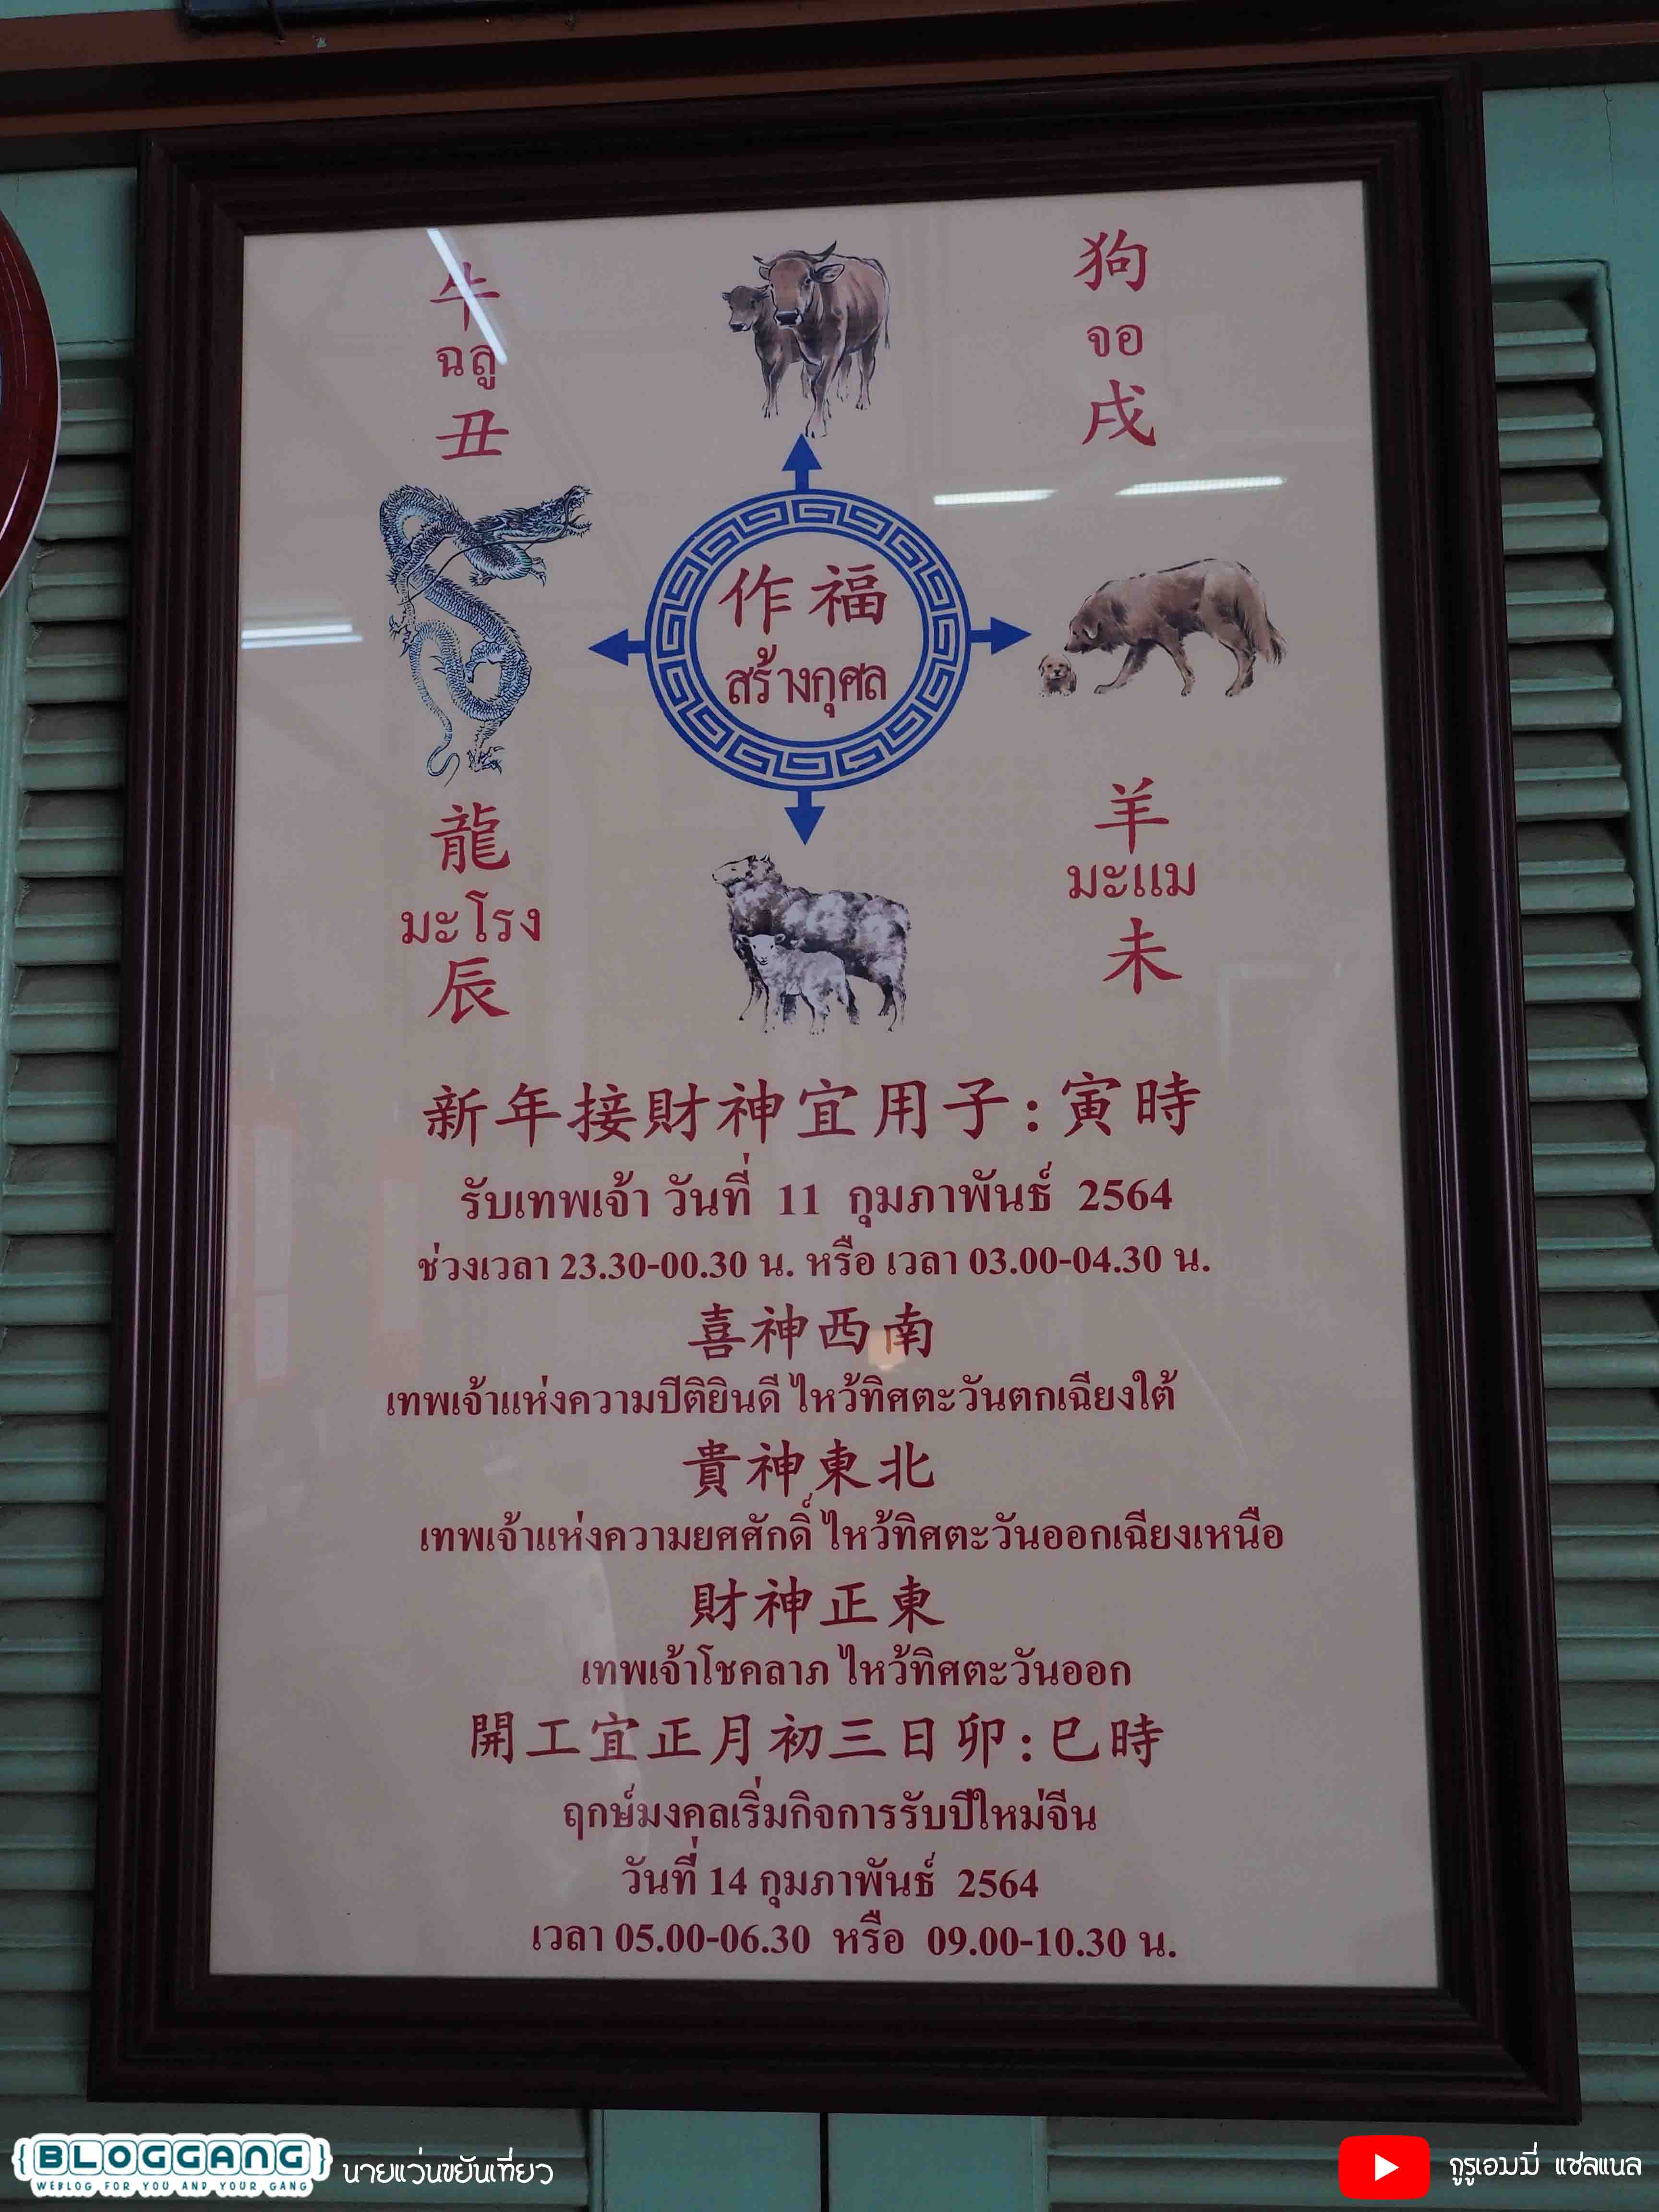 牛
ฉลู
丑
狗
จอ
戌
作福
สร้างกุศล
龍
มะโรง
辰
羊
มะแม
未
新年接財神宜用子:寅時
รับเทพเจ้า วันที่ 11 กุมภาพันธ์ 2564
ช่วงเวลา 23.30-00.30 น. หรือ เวลา 03.00-04.30 น.
喜神西南
เทพเจ้าแห่งความปีติยินดี ไหว้ทิศตะวันตกเฉียงใต้
貴神東北
เทพเจ้าแห่งความยศศักดิ์ ไหว้ทิศตะวันออกเฉียงเหนือ
財神正東
เทพเจ้าโชคลาภ ไหว้ทิศตะวันออก
開工宜正月初三日卯:巳時
ฤกษ์มงคลเริ่มกิจการรับปีใหม่จีน
วันที่ 14 กุมภาพันธ์ 2564
เวลา 05.00-06.30 หรือ 09.00-10.30 น.
{BLOGGANG}
WEBLOG FOR YOU AND YOUR GANG
นายแว่นขยันเที่ยว
กูรูเอมมี่ แชลแนล